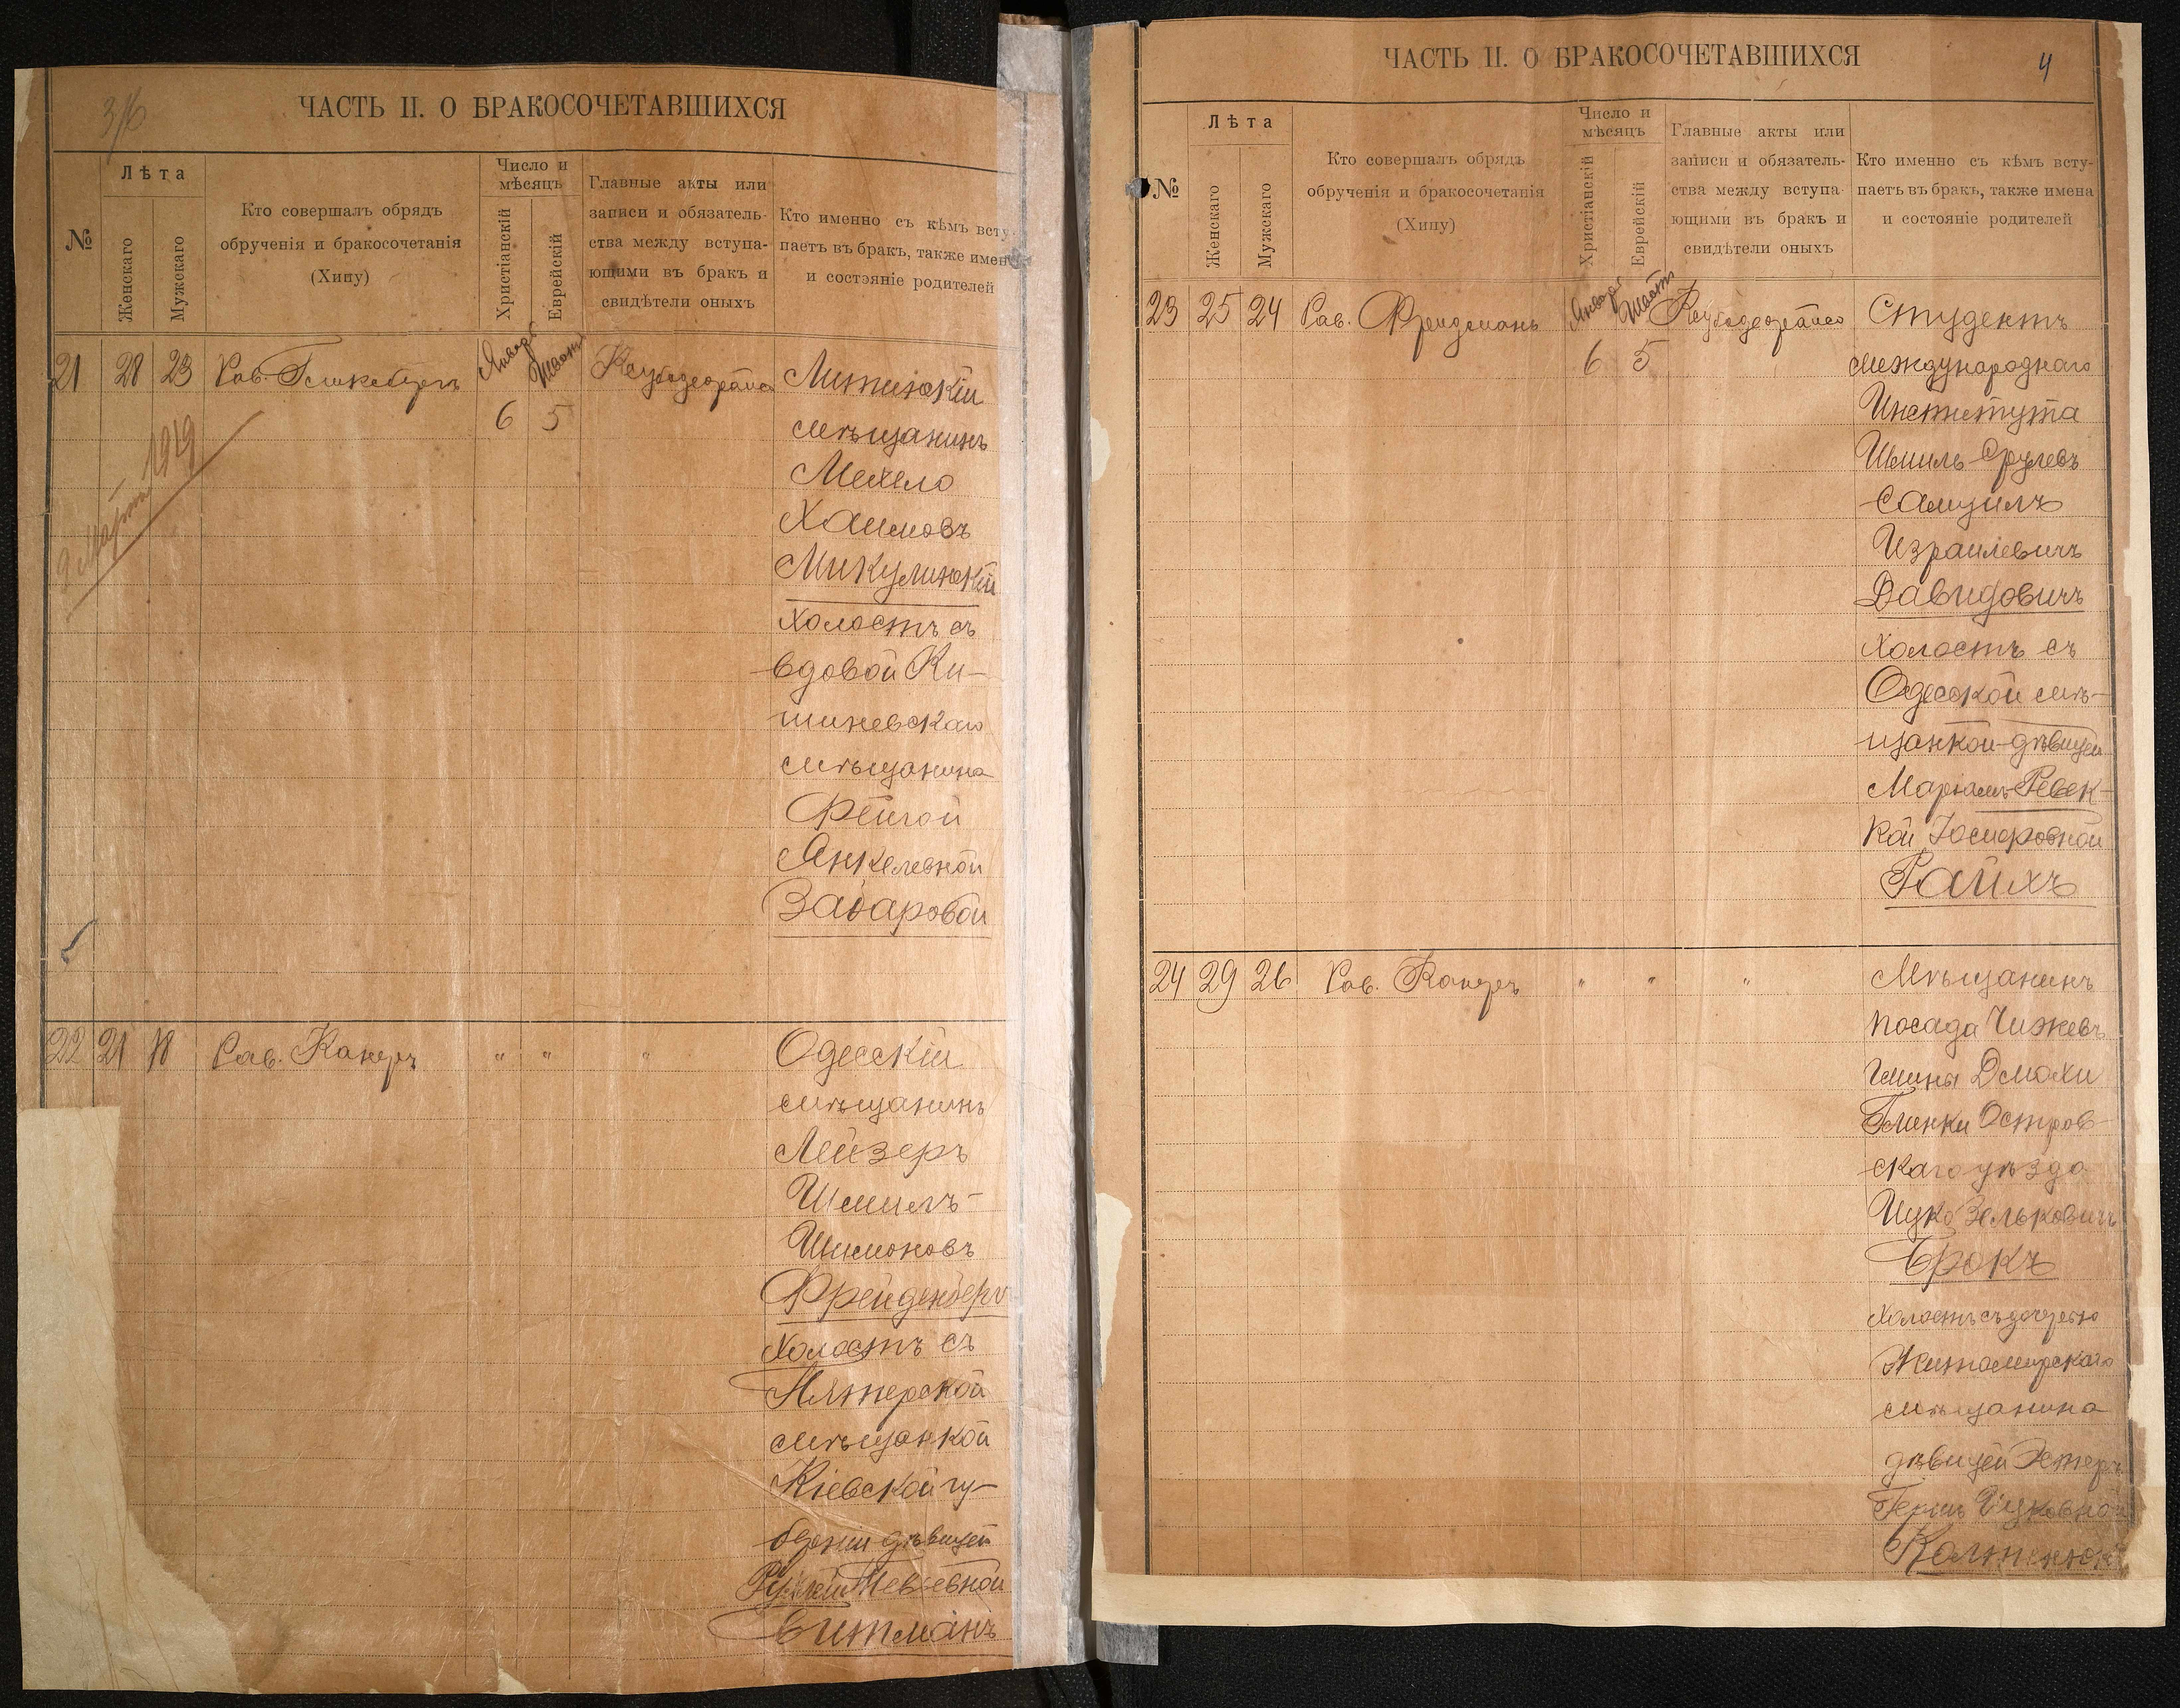 3/б
ЧАСТЬ II. О БРАКОСОЧЕТАВШИХСЯ
№
Лѣта
Женскаго
Мужскаго
Кто совершалъ обрядъ
обрученія и бракосочетанія
(Хипу)
Число и
мѣсяцъ
Христіанскій
Еврейскій
Главные акты или
записи и обязатель-
ства между вступа-
ющими въ бракъ и
свидѣтели оныхъ
Кто именно съ кѣмъ всту-
паетъ въ бракъ, также имен
и состояніе родителей
21 28 23 Рав. Январь 6 5
Литинскій
мѣщанинъ
Мехело
Хаимовъ
Микулинскій
холостъ съ
вдовой Ки-
шиневскаго
мѣщанина
Фейгой
Янкелевной
Захаровой
1919
22 21 18 Рав. Канеръ " " "
Одесскій
мѣщанинъ
Лейзеръ
Шмилъ-
Шимоновъ
Фрейденберг
холостъ съ
мѣщанкой
Кіевской гу-
берніи дѣвицей
Витманъ
ЧАСТЬ II. О БРАКОСОЧЕТАВШИХСЯ
4
№
Лѣта
Женскаго
Мужскаго
Кто совершалъ обрядъ
обрученія и бракосочетанія
(Хипу)
Число и
мѣсяцъ
Христіанскій
Еврейскій
Главные акты или
записи и обязатель-
ства между вступа-
ющими въ бракъ и
свидѣтели оныхъ
Кто именно съ кѣмъ всту-
паетъ въ бракъ, также имена
и состояніе родителей
23 25 24 Рав. Фридманъ Январь 6 5
Студентъ
международнаго
Института
Шмиль Срулевъ
Самуилъ
Израилевичъ
Давидовичъ
холостъ съ
Одесской мѣ-
щанкой-дѣвицей
Маріамъ-Ревек-
кой Іосифовной
Райхъ
24 29 26 Рав. Канеръ " " "
Мѣщанинъ
посада Чижевъ
Гмины Дмохи
Глинки Остров-
скаго уѣзда
Ицко Зельковичъ
Брокъ
холостъ съ дочерью
Житомирскаго
мѣщанина
дѣвицей Эстеръ
Ицковной